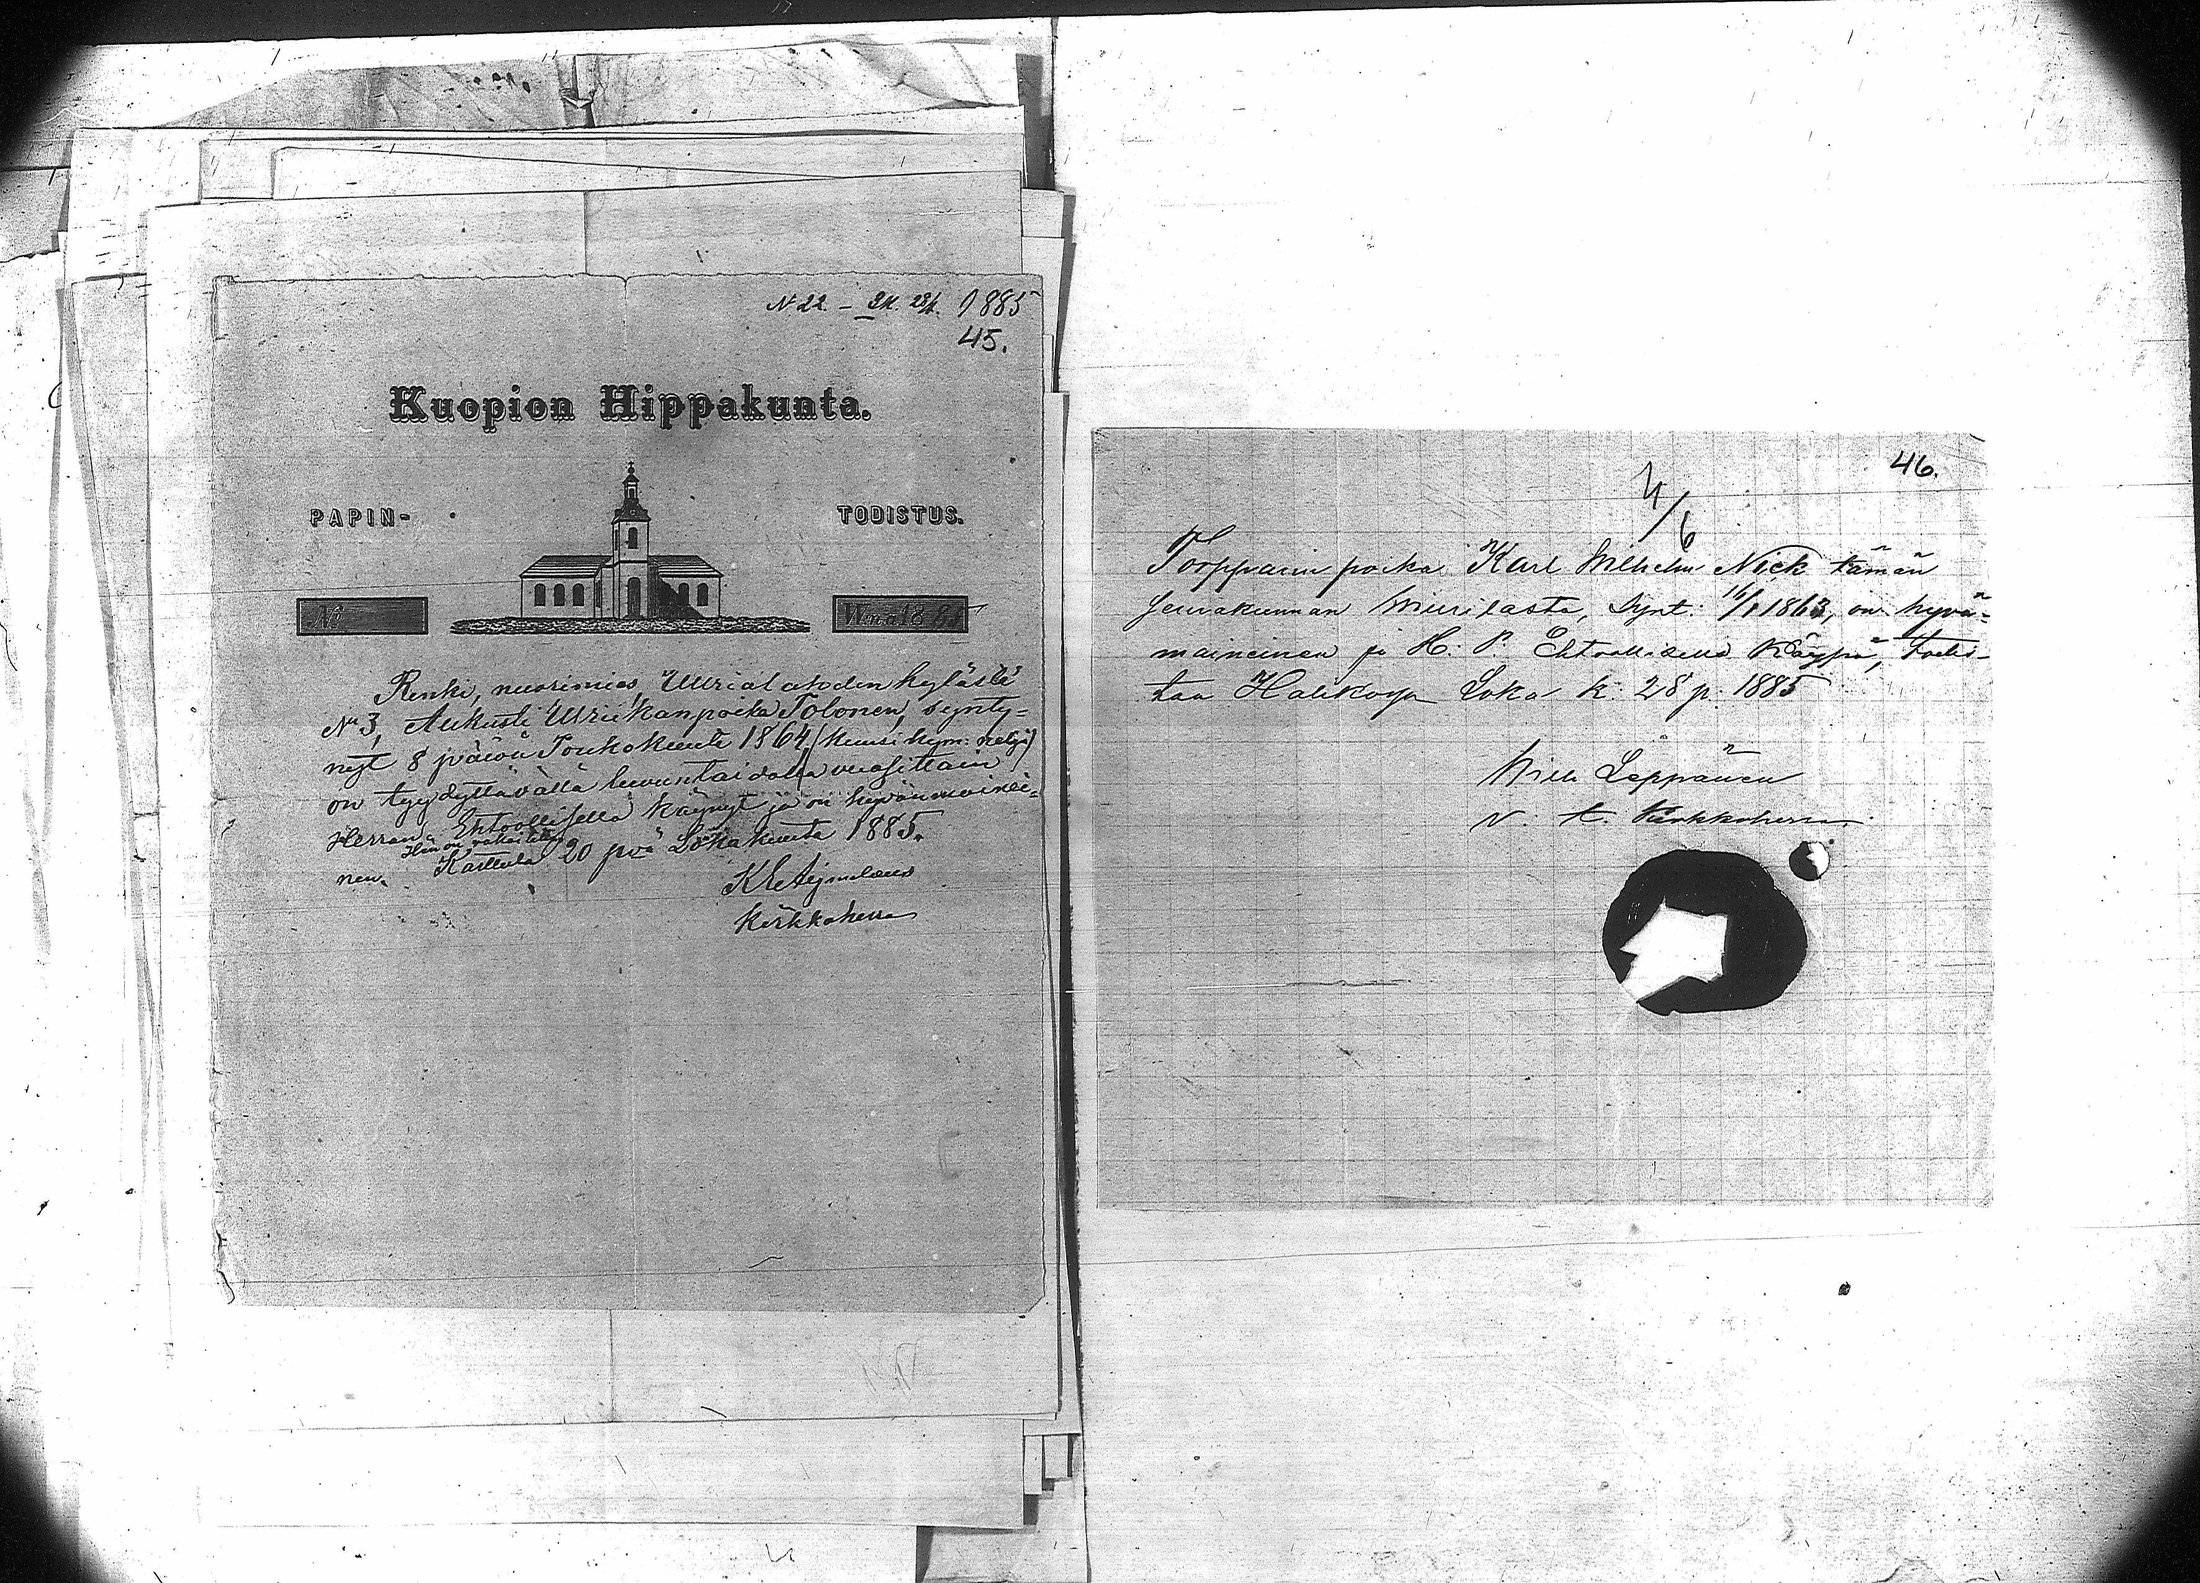 N 22. – 1885
45.
Kuopion Hippakunta.
PAPIN-
TODISTUS.
No
W:na 1885
Renki, nuorimies, kylästä
No 3, Aukusti Tolonen, synty-
nyt 8 päivä Toukokuuta 1864 (kuusi kym: neljä)
on tyydyttävällä luvuntaidolla vuosittain
Herran Ehtoollisella käynyt ja on hyvänmainei-
nen. Hän on rokoitettu
Karttula 20 pvä Lokakuuta 1885.
Kirkkoherra
46.
4/6
Torpparin poika Karl Wilhelm Nick tämän
seurakunnan Wiurilasta, synt: 16/1 1863, on hyvä-
maineinen ja H. P. Ehtoollisella käypä, todis-
taa Halikossa Loka k: 28 p: 1885
Leppänen
v. t. Kirkkoherra.